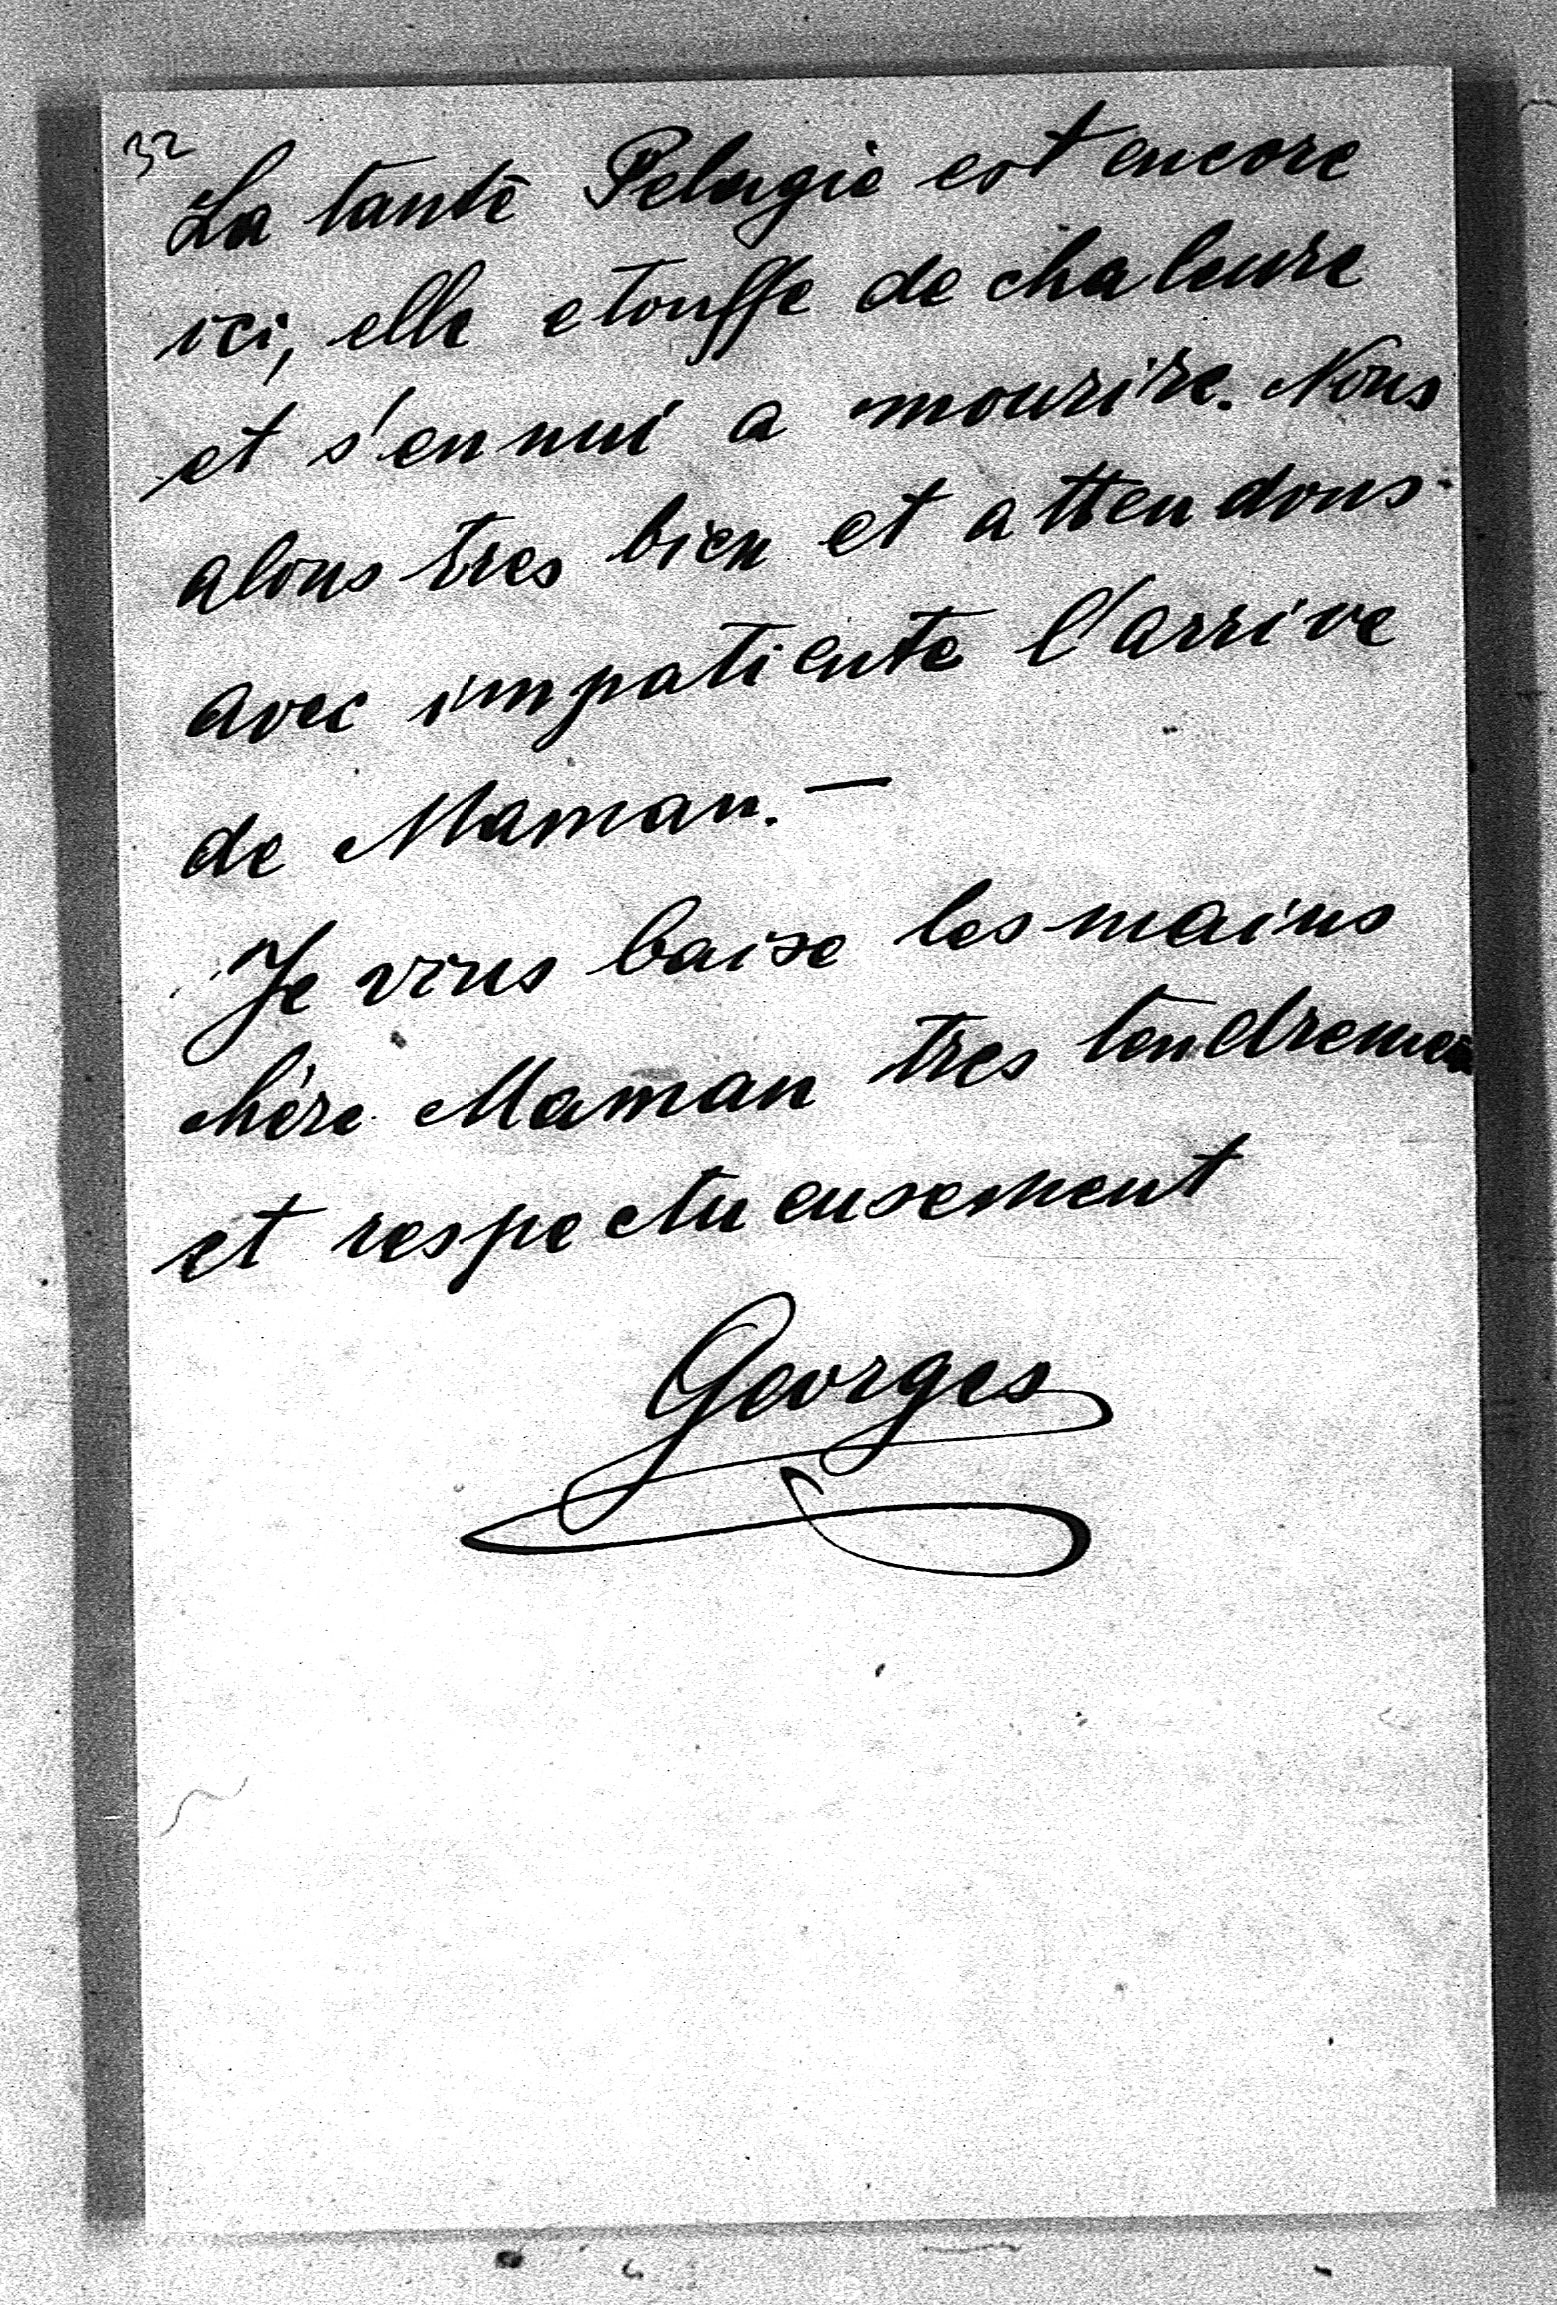 32
La tante Pelagie est encore
ici, elle etouffe de chaleure
et s'ennui a mourire. Nous
alons tres bien et attendons
avec impatiente l'arrive
de Maman. —
Je vous baise les mains
chère Maman tres tendremen
et respectueusement
Georges